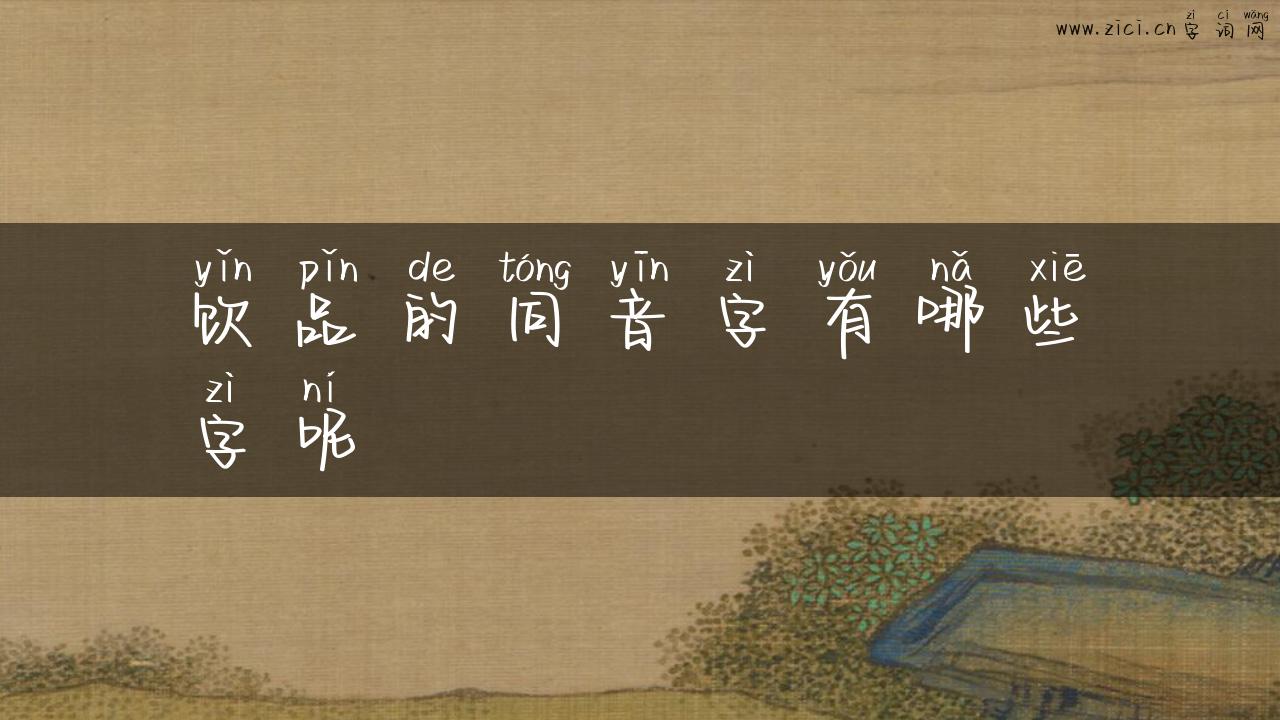 zì cí wǎng
www.zici.cn 字 词 网
yǐn pǐn de tóng yīn zì yǒu nǎ xiē
饮 品 的 同 音 字 有 哪 些
zì ní
字 呢